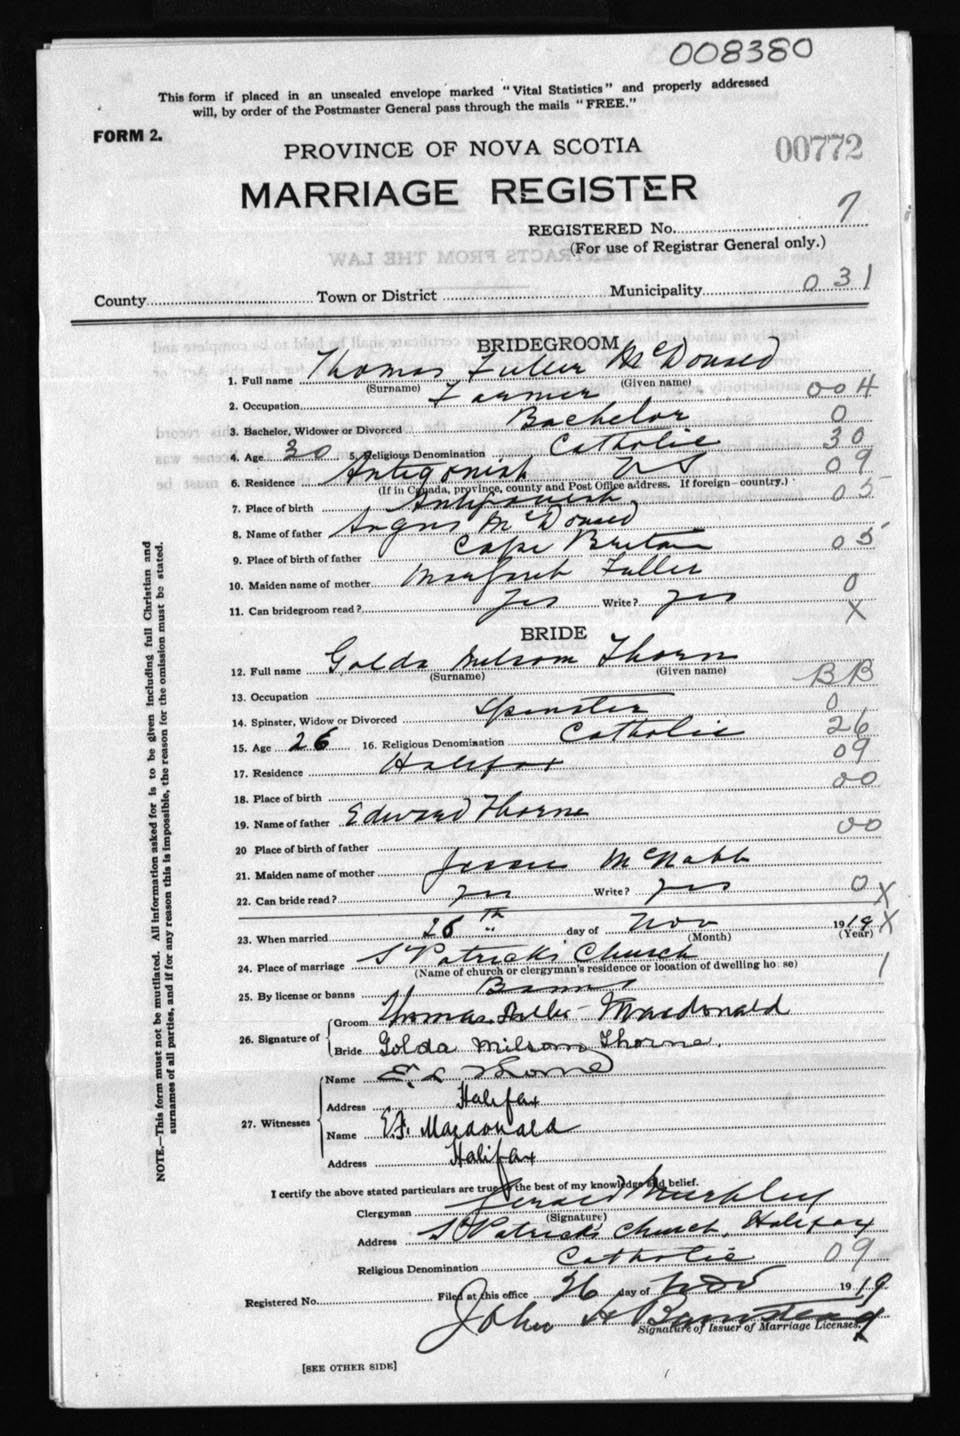 008380
This form if placed in an unsealed envelope marked "Vital Statistics" and properly addressed
will, by order of the Postmaster General pass through the mails "FREE."
FORM 2.
PROVINCE OF NOVA SCOTIA
00772
MARRIAGE REGISTER
REGISTERED No. 7
(For use of Registrar General only.)
EXTRACTS FROM THE LAW
County Town or District Municipality 031
BRIDEGROOM
1. Full name Thomas Fuller McDonald
(Surname) (Given name)
2. Occupation Farmer 004
3. Bachelor, Widower or Divorced Bachelor 0
4. Age 30 5. Religious Denomination Catholic 30
6. Residence Antigonish NS 09
(If in Canada, province, county and Post Office address. If foreign—country.)
7. Place of birth Antigonish 05
8. Name of father Angus McDonald
9. Place of birth of father Cape Breton 05
10. Maiden name of mother Margaret Fuller
11. Can bridegroom read? Yes Write? Yes 0
X
BRIDE
12. Full name Golda Milsom Thorn
(Surname) (Given name)
13. Occupation BB
14. Spinster, Widow or Divorced Spinster 0
15. Age 26 16. Religious Denomination Catholic 26
17. Residence Halifax 09
18. Place of birth 00
19. Name of father Edward Thorne
20 Place of birth of father 00
21. Maiden name of mother Jessie McNabb
22. Can bride read? yes Write? yes 0 X
23. When married 26th day of Nov 1919 X
(Month) (Year)
24. Place of marriage St Patrick's Church 1
(Name of church or clergyman's residence or location of dwelling house)
25. By license or banns Banns
26. Signature of Groom Thomas Fuller Macdonald
Bride Golda Milsom Thorne.
27. Witnesses Name E. L Thorne
Address Halifax
Name E.F. Macdonald
Address Halifax
I certify the above stated particulars are true to the best of my knowledge and belief.
Clergyman Gerald Murphy
(Signature)
Address St Patrick's Church, Halifax
Religious Denomination Catholic 09
Registered No. Filed at this office 26 day of Nov 1919
John H Barnstead
Signature of Issuer of Marriage Licenses.
X
[SEE OTHER SIDE]
NOTE.—This form must not be mutilated. All information asked for is to be given including full Christian and
surnames of all parties, and if for any reason this is impossible, the reason for the omission must be stated.